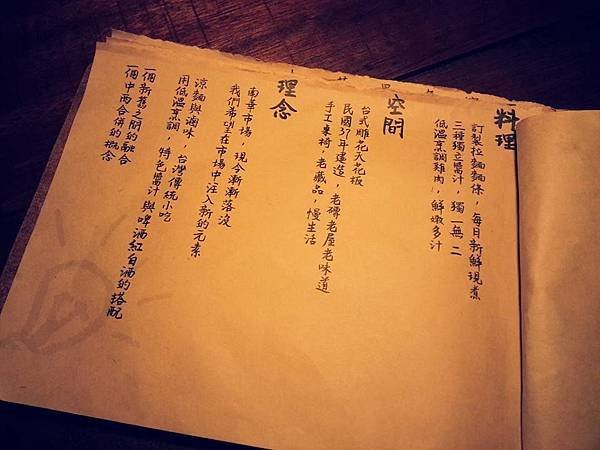 料理
訂製拉麵麵條，每日新鮮現煮
三種獨立醬汁，獨一無二
低溫烹調雞肉，鮮嫩多汁
空間
台式雕花天花板
民國37年建造，老磚老屋老味道
手工桌椅，老藏品，慢生活
理念
南華市場，現今漸漸落沒
我們希望在市場中注入新的元素
涼麵與滷味，台灣傳統小吃
用低溫烹調，特色醬汁與啤酒紅白酒的搭配
一個新舊之間的融合
一個中西合併的概念